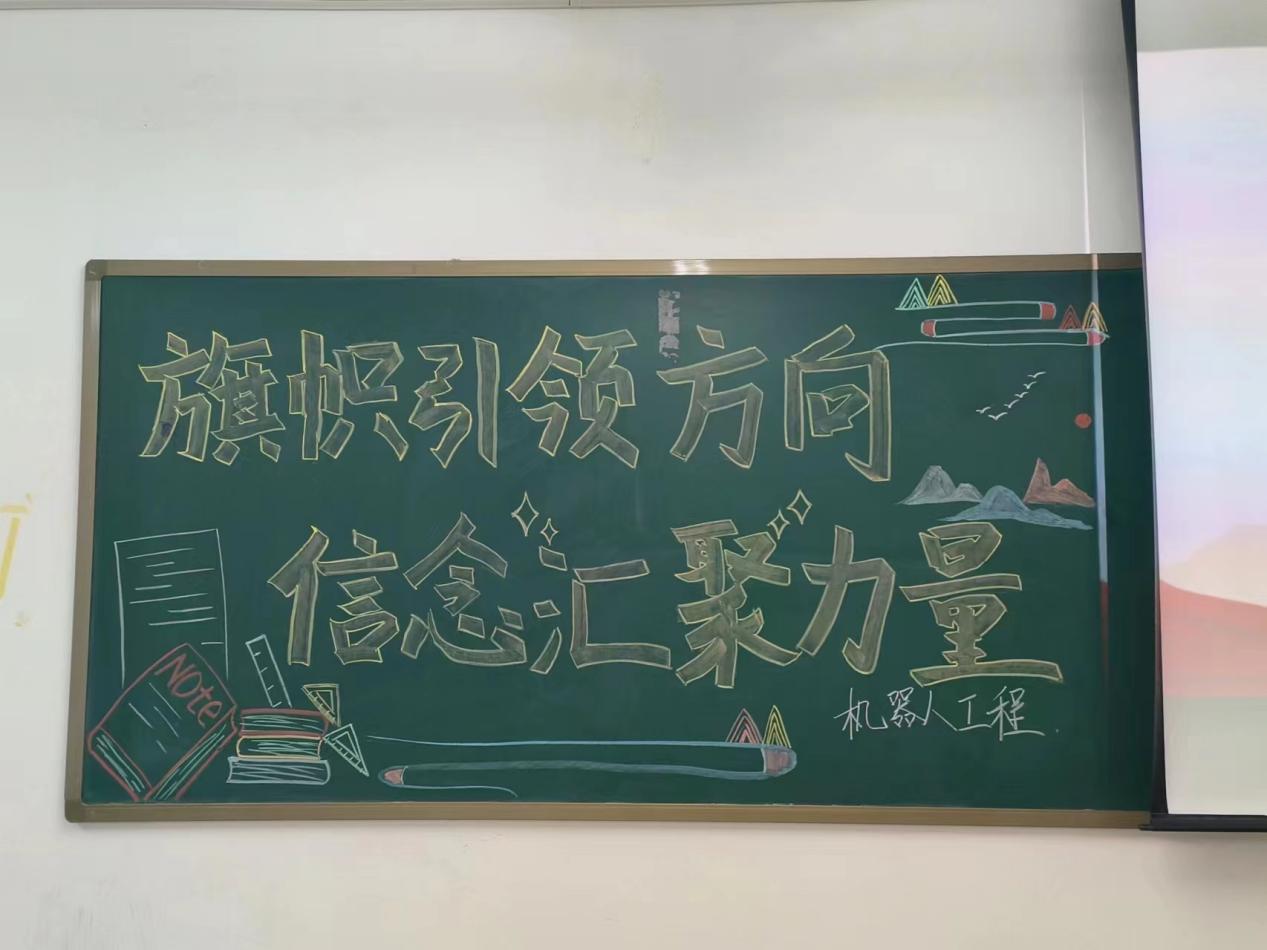 旗帜引领方向
信念汇聚力量
Note
机器人工程